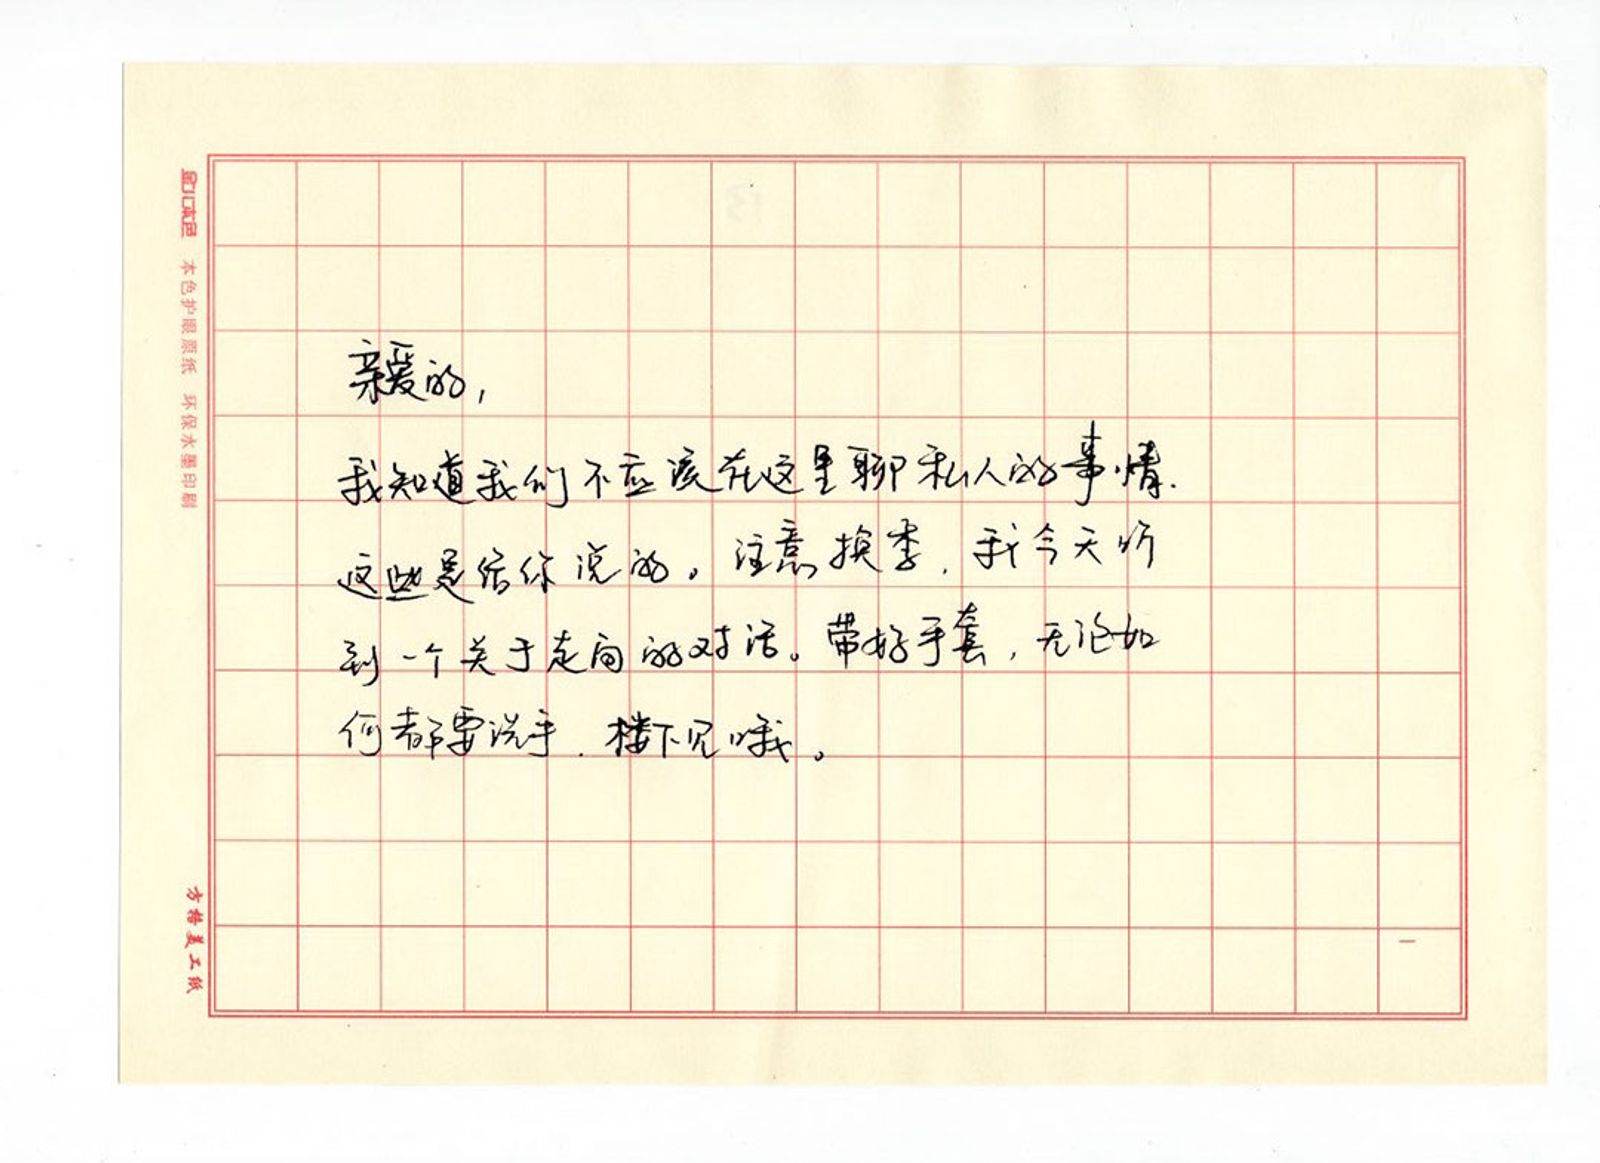 亲爱的，
我知道我们不应该在这里聊私人的事情.
这些是给你说的。注意换季，我今天听
到一个关于走向的对话。带好手套，无论如
何都要洗手.楼下见哦。
本色护眼原纸 环保水墨印刷
方格美工纸
一